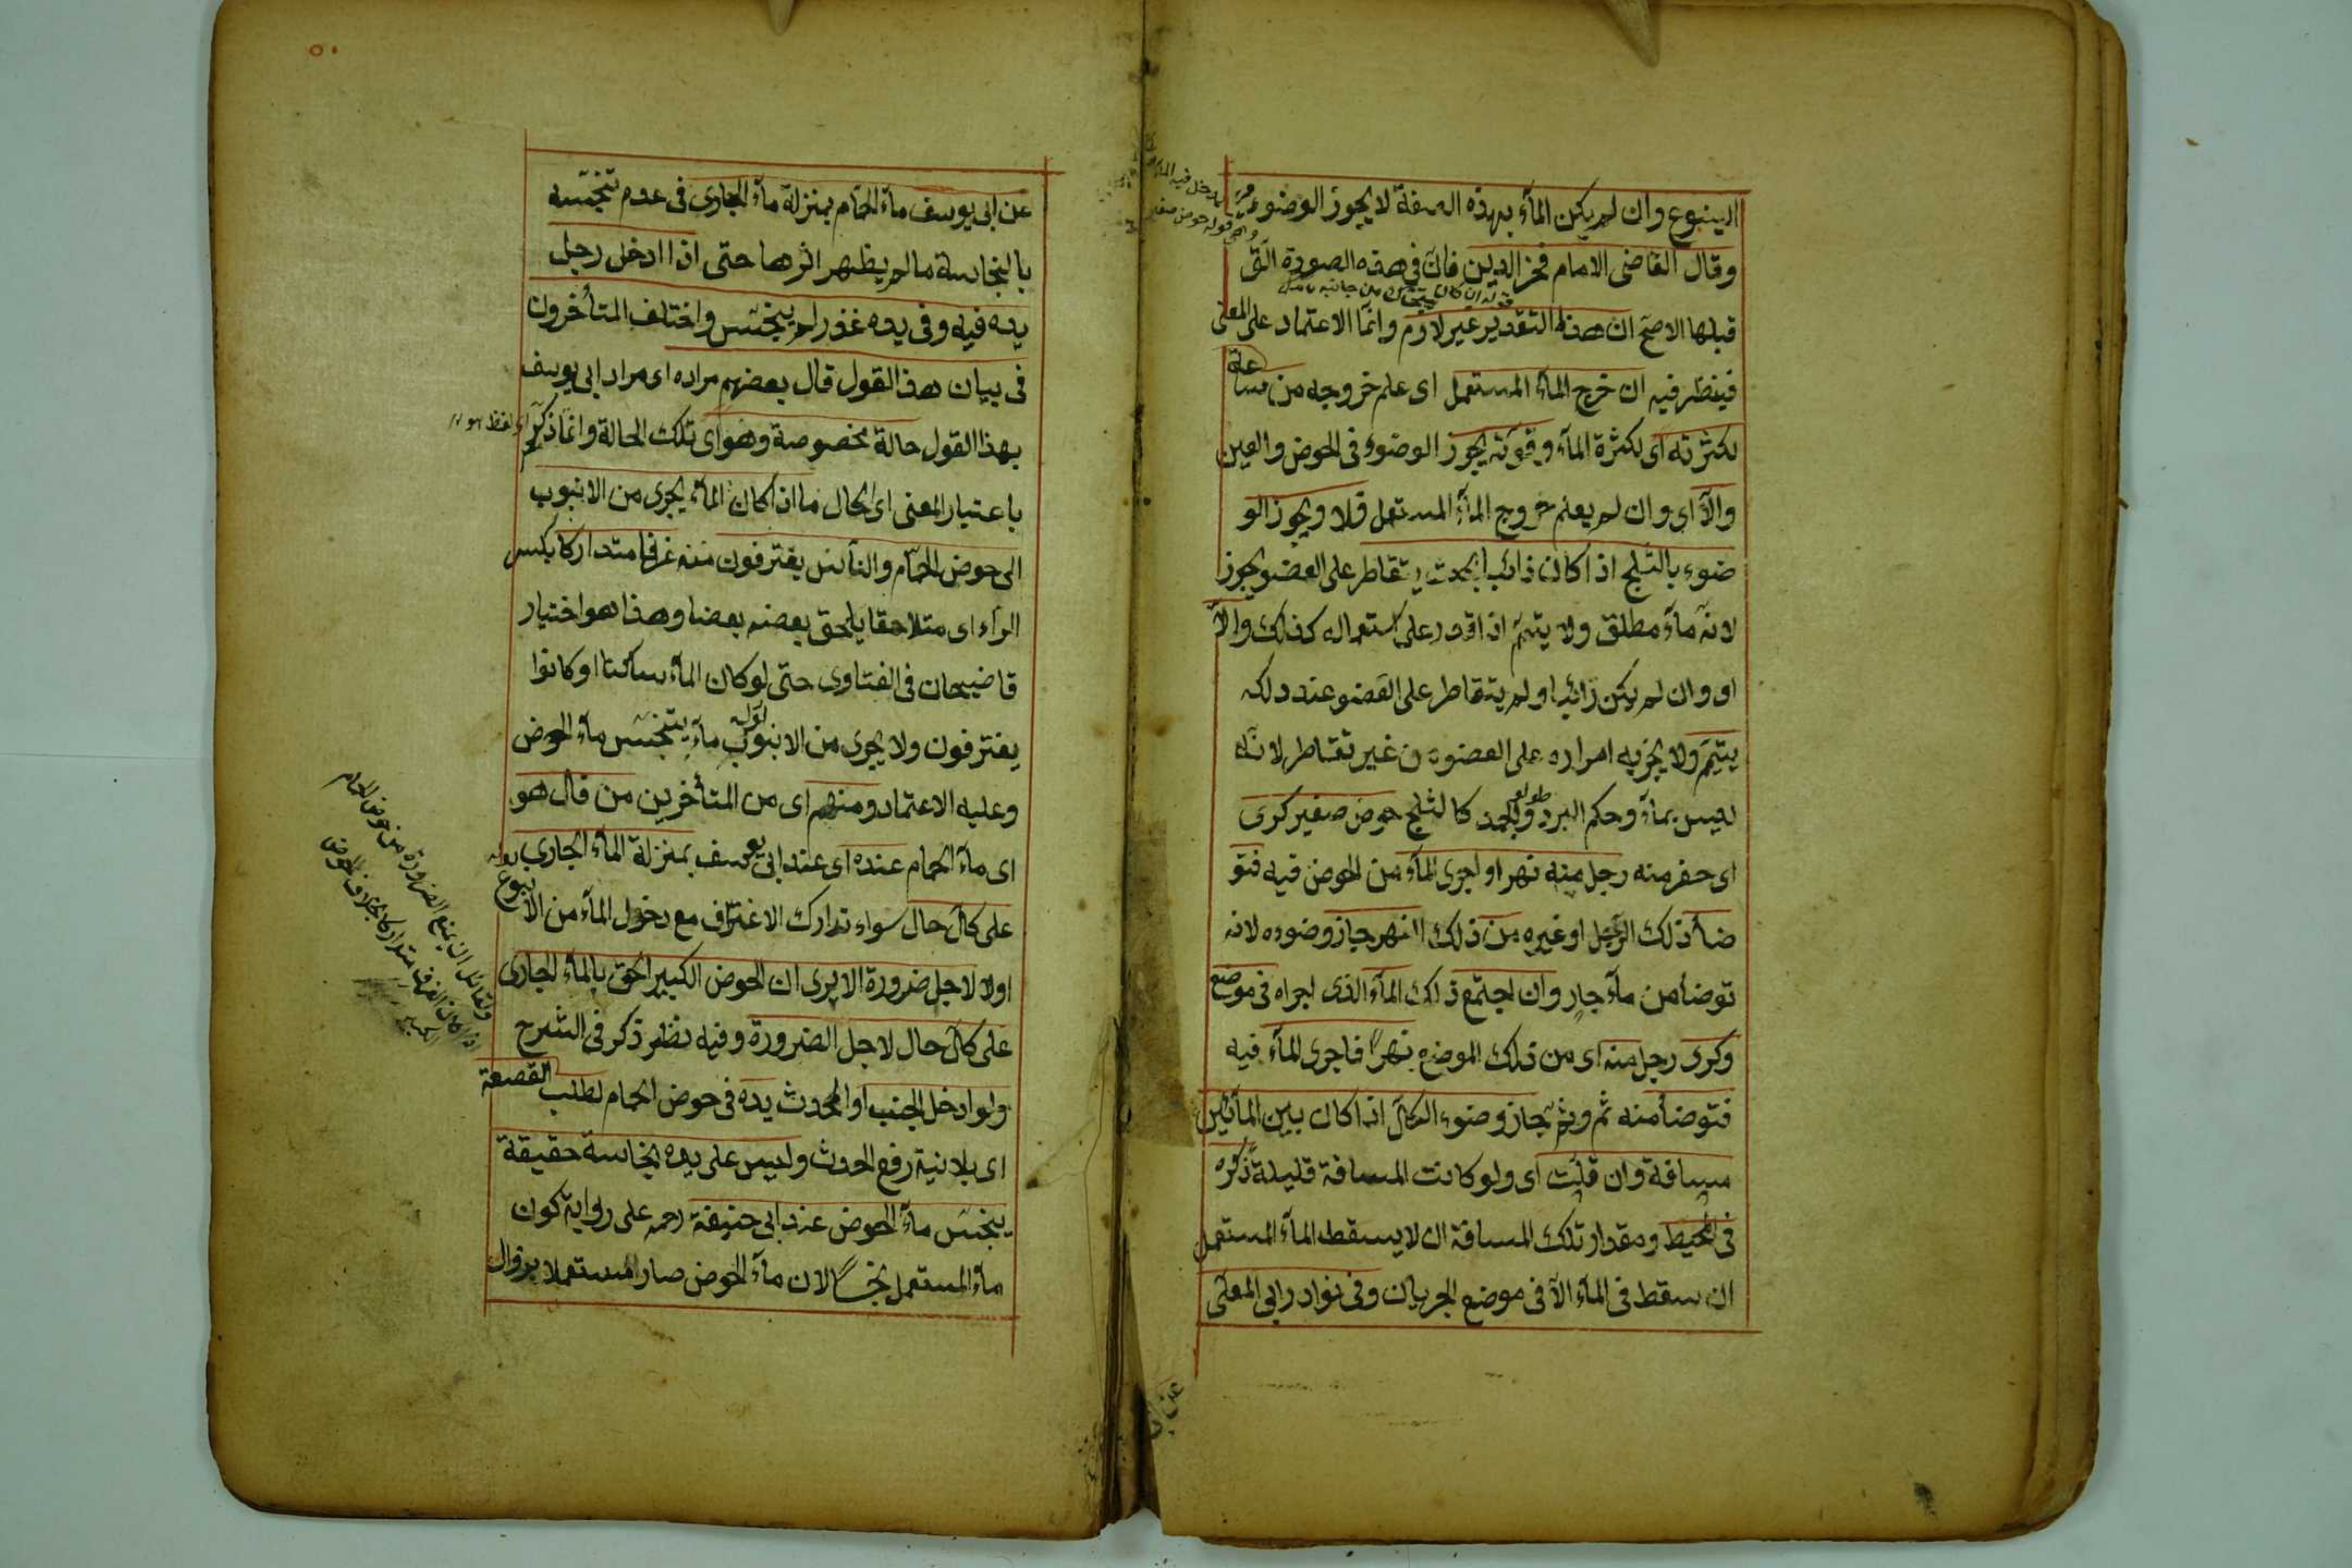 الينبوع وان لم يكن الماء بهذه الصفة لا يجوز الوضوء
وقال القاضى الامام فخر الدين خان فى هذه الصورة التى
قبلها الاصح ان هذا التقدير غير لازم وانما الاعتماد على المعنى
فينظر فيه ان خرج الماء المستعمل اى علم خروجه من ساعة
لكثرته اى لكثرة الماء وقوته يجوز الوضوء فى الحوض والعين
والا اى وان لم يعلم خروج الماء المستعمل فلا ويجوز الو
ضوء بالثلج اذا كان ذائبا بحيث يتقاطر على العضو يجوز
لانه ماء مطلق ولا يتيمم اذا قدر على استعماله كذلك والا
اى وان لم يكن ذائبا ولم يتقاطر على العضو عند دلكه
يتيمم ولا يجزيه امراره على العضو من غير تقاطر لانه
ليس بماء وحكم البرد والجمد كالثلج حوض صغير كرى
اى حفر منه رجل منه نهرا واجرى الماء من الحوض فيه فتو
ضأ ذلك الرجل او غيره من ذلك النهر جاز وضوءه لانه
توضأ من ماء جار وان اجتمع ذلك الماء الذى اجراه فى موضع
وكرى رجل منه اى من ذلك الموضع نهرا فاجرى الماء فيه
فتوضأ منه ثم وثم جاز وضوء الكل اذا كان بين المائين
مسافة وان قلت اى ولو كانت المسافة قليلة ذكره
فى المحيط ومقدار تلك المسافة ان لا يسقط الماء المستعمل
ان سقط فى الماء الا فى موضع الجريان وفى نوادر ابى المعلى
عن ابى
عن ابى يوسف ماء الحمام بمنزلة ماء الجارى فى عدم تنجسه
بالنجاسة ما لم يظهر اثرها حتى اذا ادخل رجل
يده فيه وفى يده غذر لم ينجس واختلف المتأخرون
فى بيان هذا القول قال بعضهم مراده اى مراد ابى يوسف
بهذا القول حالة مخصوصة وهو اى تلك الحالة وانما ذكر
باعتبار المعنى اى الحال ما اذا كان الماء يجرى من الانبوب
الى حوض الحمام والناس يغترفون منه غرفا متداركا بكسر
الراء اى متلاحقا يلحق بعضه بعضا وهذا هو اختيار
قاضيخان فى الفتاوى حتى لو كان الماء ساكنا او كانوا
يغترفون ولا يجرى من الانبوب ماء يتنجس ماء الحوض
وعليه الاعتماد ومنهم اى من المتأخرين من قال هو
اى ماء الحمام عنده اى عند ابى يوسف بمنزلة الماء الجارى
على كل حال سواء تدارك الاغتراف مع دخول الماء من الانبوب
اولا لاجل ضرورة الا يرى ان الحوض الكبير الحق بالماء الجارى
على كل حال لاجل الضرورة وفيه نظر ذكر فى الشرح
ولو ادخل الجنب او المحدث يده فى حوض الحمام لطلب القصعة
اى بلا نية رفع الحدث وليس على يده نجاسة حقيقة
ينجس ماء الحوض عند ابى حنيفة رحمه على رواية كون
ماء المستعمل نجسا لان ماء الحوض صار المستعملا بزوال